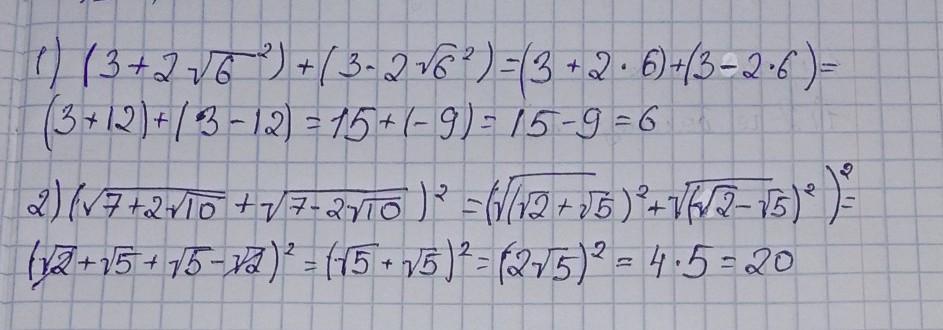 1) (3+2√6²)+(3-2√6²)=(3+2·6)+(3-2·6)=
(3+12)+(3-12)=15+(-9)=15-9=6
2) (√7+2√10 + √7-2√10)²=(√(√2+√5)²+√(√2-√5)²)²=
(√2+√5+√5-√2)²=(√5+√5)²=(2√5)²=4·5=20